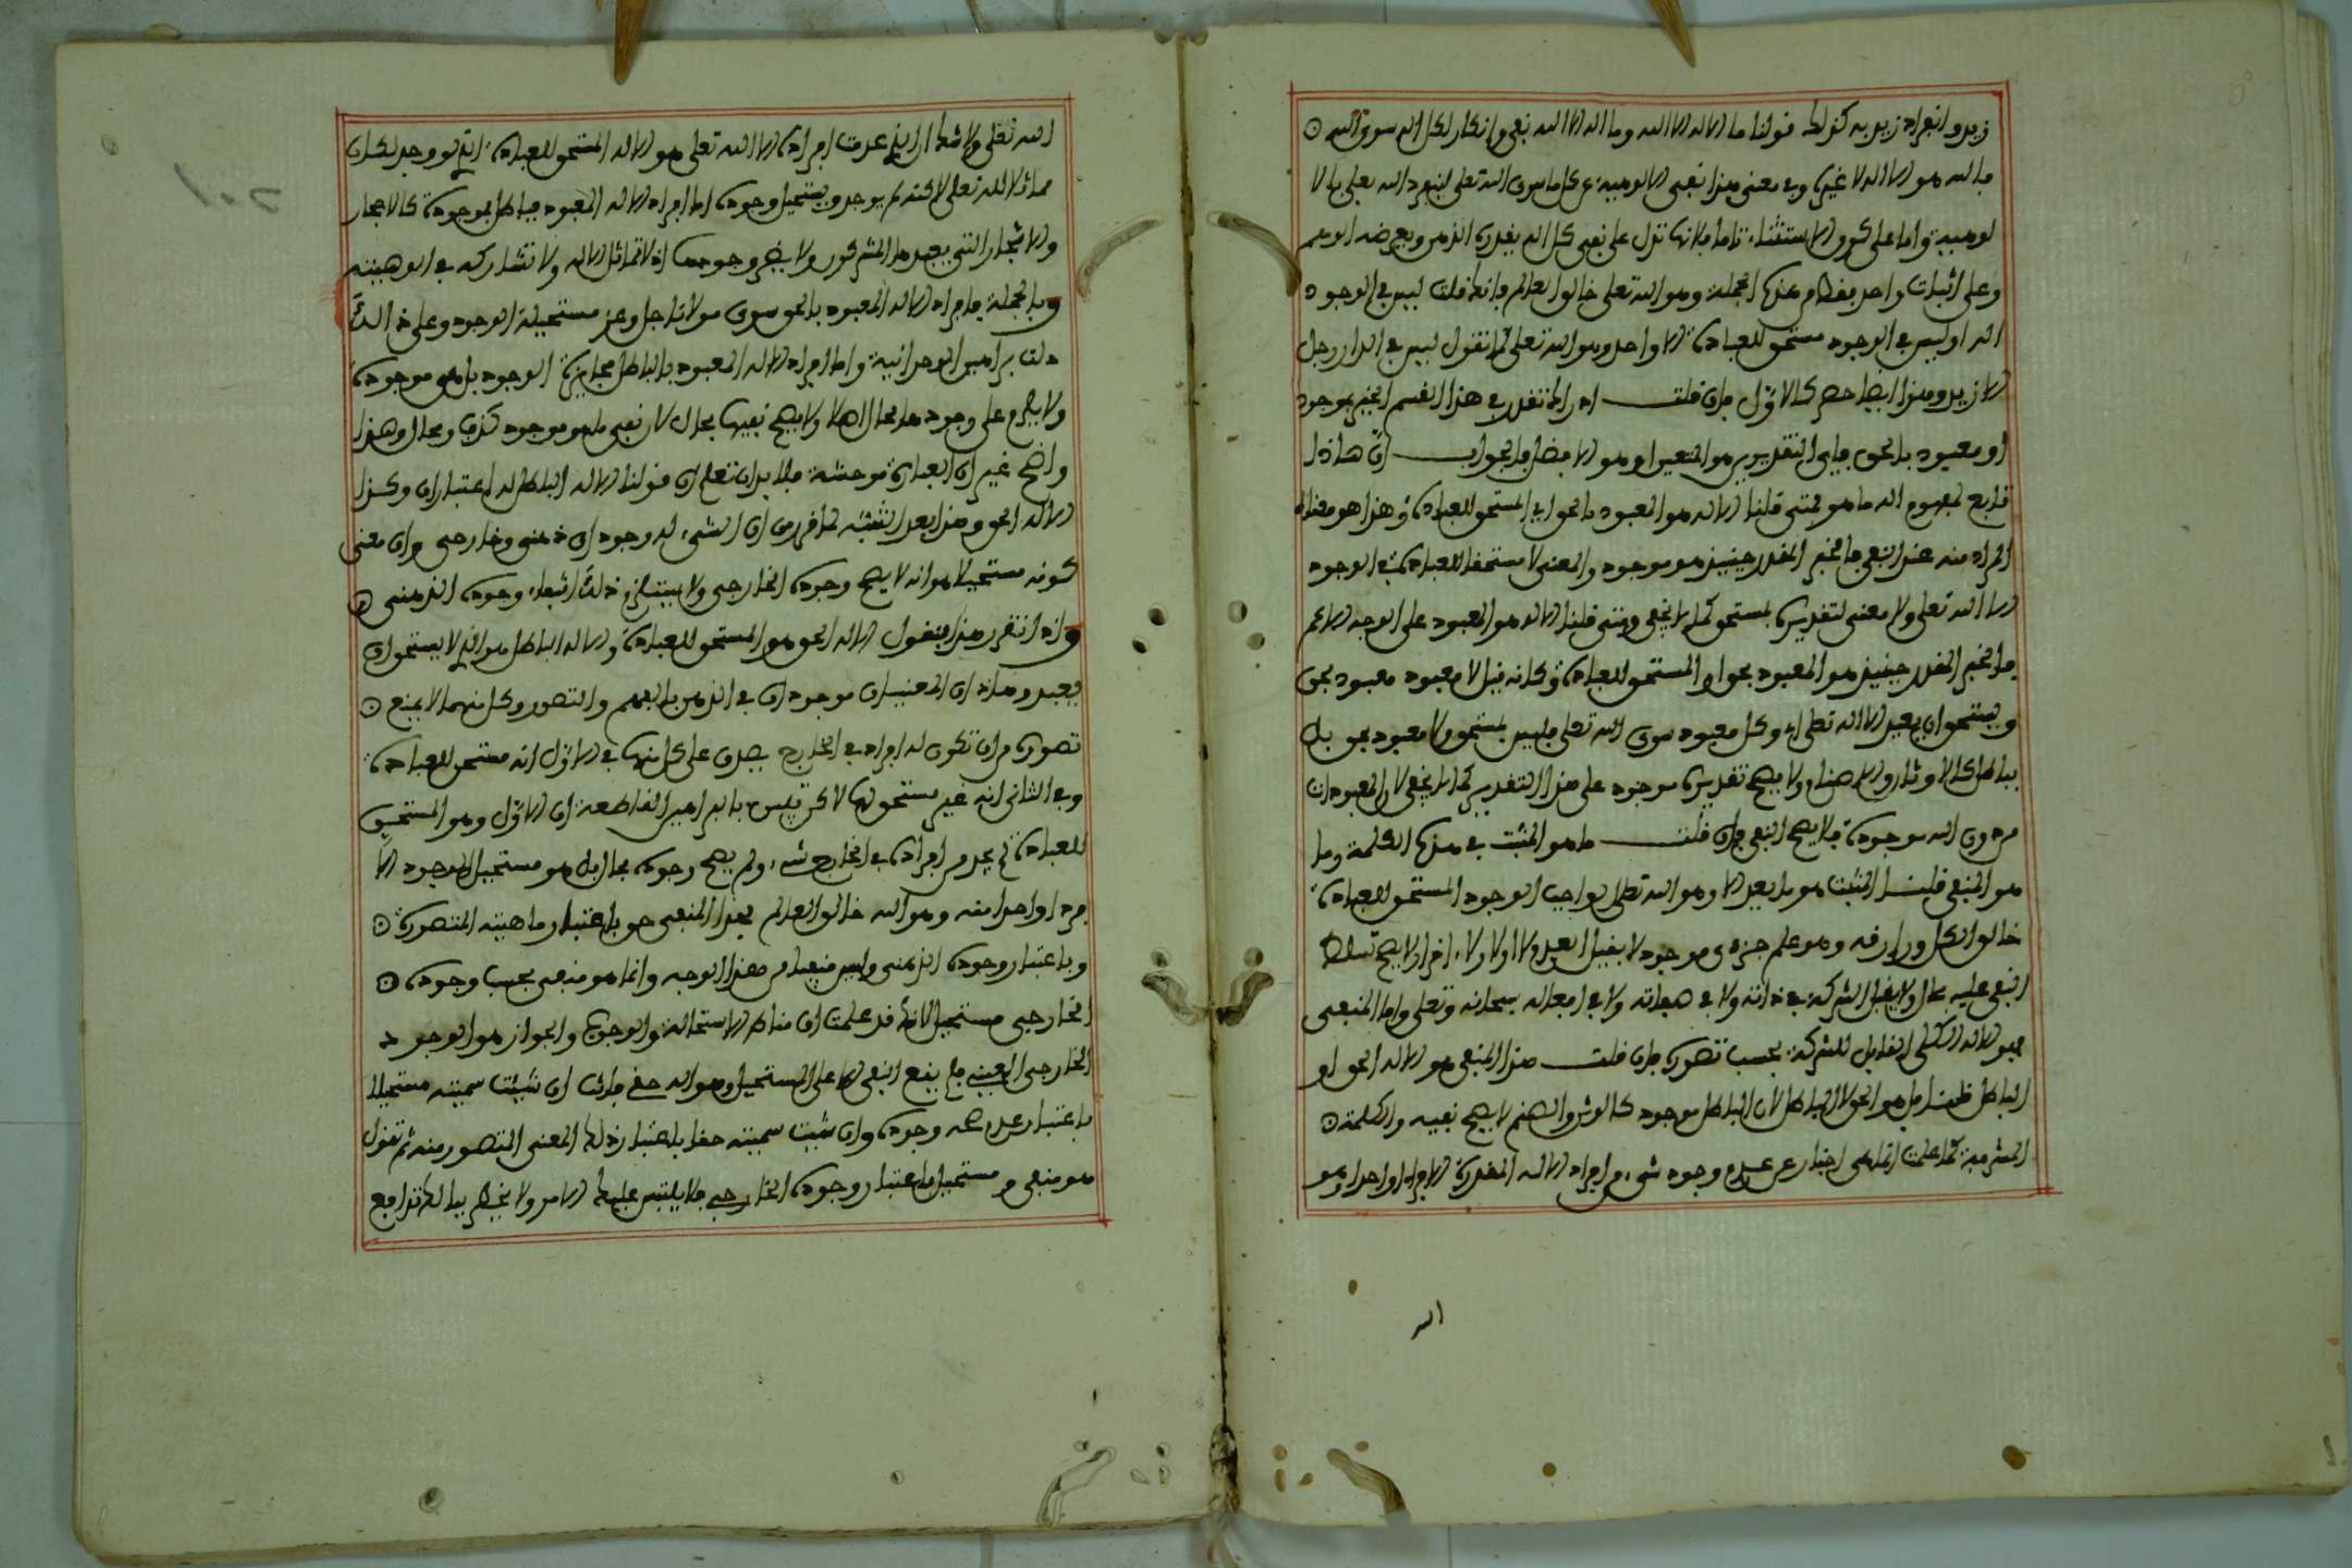 زيد وانفراد زيد به كذلك قولنا ما الاله الا الله وما اله الا الله نفي وانكار لكل اله سوى الله
فالله هو الاله لا غيره وفي معنى هذا نفي الالوهية عن كل ما سوى الله تعلى لينفرد الله تعلى بالا
لوهية واما على كون الاستثناء تاما فلانها تدل على نفي كل اله يقدره الذهن ويفرضه الوهم
وعلى اثبات واحد فقط من هذه الجملة وهو الله تعلى خالق العالم فانك قلت ليس في الوجود
اله او ليس في الوجود مستحق للعبادة الا واحد وهو الله تعلى كما تقول ليس في الدار رجل
الا زيد وهذا ايضا حصر كالاول فان قلت اذ الخ تقدر في هذا القسم الخبر موجود
او معبود بالحق فاي التقديرين هو المتعين او هو الافضل فالجواب ان هاذا
تابع لمفهوم اله ما هو فمتى قلنا الاله هو المعبود بالحق اي المستحق للعبادة وهذا هو معناه
المراد منه عند النفي فالخبر المقدر حينئذ هو موجود والمعنى لا مستحقا للعبادة في الوجود
الا الله تعلى ولا معنى لتقديره بمستحق كما لا يخفى ومتى قلنا الاله هو المعبود على الوجه الاعم
فالخبر المقدر حينئذ هو المعبود بحق او المستحق للعبادة وكانه قيل لا معبود معبود بحق
ويستحق ان يعبد الا الله تعلى اي وكل معبود سوى الله تعلى فليس بمستحق ولا معبود بحق بل
بباطل كالاوثان والاصنام ولا يصح تقديره موجود على هذا التقدير كما لا يخفى لان المعبودات
من دون الله موجودة فلا يصح النفي فان قلت ما هو المثبت في هذه الكلمة وما
هو المنفي قلنا المثبت هو ما بعد الا وهو الله تعلى الواجب الوجود المستحق للعبادة
خالق الكل ورازقه وهو علم جزءى موجود لا يقبل العدم لا اولا ولا اخرا ولا يصح تسلط
النفي عليه بحال ولا يقبل الشركة في ذاته ولا في صفاته ولا في افعاله سبحانه وتعلى واما المنفي
فهو الاله الكلي القابل للشركة بحسب تصوره فان قلت هذا المنفي هو الاله الحق او
الباطل قلنا بل هو الحق لا الباطل لان الباطل موجود كالوثن والصنم لا يصح نفيه والكلمة
المشرفة كما علمت انما هي اخبار عن عدم وجود شيء من افراد الاله المقدرة الا فردا واحدا وهو
الله
الله تعلى ولا شك ان الذي عدمت افراده الا الله تعلى هو الاله المستحق للعبادة الذي لو وجد لكان
مماثلا لله تعلى لاكنه لم يوجد ويستحيل وجوده اما افراد الاله المعبود بباطل فموجودة كالاحجار
والاشجار التي يعبدها المشركون ولا يضر وجودها اذ لا تماثل الاله ولا تشاركه في الوهيته
وبالجملة فافراد الاله المعبود بالحق سوى مولانا جل وعز مستحيلة الوجود وعلى ذالك
دلت براهين الوحدانية واما افراد الاله المعبود بالباطل فجايزة الوجود بل هي موجودة
ولا يلزم على وجودها محال اصلا ولا يصح نفيها بحال لان نفي ما هو موجود كذب ومحال وهذا
واضح غير ان العبارة موحشة فلا بد ان تعلم ان قولنا الاله الباطل له اعتباران وكذا
الاله الحق وهذا بعد التنبه لما قررن ان الشيء له وجودان ذهني وخارجي وان معنى
كونه مستحيلا هو انه لا يصح وجوده الخارجي ولا يستلزم ذلك انتفاء وجوده الذهني
واذا تقرر هذا فنقول الاله الحق هو المستحق للعبادة والاله الباطل هو الذي لا يستحق ان
يعبد وهذان المعنيان موجودان في الذهن بالفهم والتصور وكل منهما لا يمنع
تصوره من ان تكون له افراد في الخارج يصدق على كل منها في الاول انه مستحق للعبادة
وفي الثاني انه غير مستحق لها لاكن تبين بالبراهين القاطعة ان الاول وهو المستحق
للعبادة لم يوجد من افراده في الخارج شيء ولم يصح وجوده بحال بل هو مستحيل الوجود الا
فردا واحدا منه وهو الله خالق العالم فهذا المنفي حق باعتبار ماهيته المتصورة
وباعتبار وجوده الذهني وليس منفيا من هذا الوجه وانما هو منفي بحسب وجوده
الخارجي مستحيل لانك قد علمت ان مناط الاستحالة والوجوب والجواز هو الوجود
الخارجي العيني فلم يقع النفي الا على المستحيل وهو اله حق فانت ان شئت سميته مستحيلا
باعتبار عدم صحة وجوده وان شئت سميته حقا باعتبار ذلك المعنى المتصور منه ثم تقول
هو منفي ومستحيل باعتبار وجوده الخارجي فلا يلتبس عليك الامر ولا يخطر ببالك تدافع